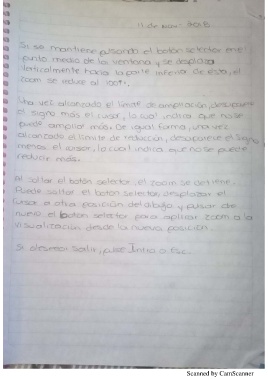 11 de Nov. 2018
Si se mantiene pulsando el botón selector en el
punto medio de la ventana y se desplaza
verticalmente hacia la parte inferior de ésta, el
zoom se reduce al 100%.
Una vez alcanzado el límite de ampliación, desaparece
el signo más el cursor, lo cual indica que no se
puede ampliar más. De igual forma, una vez
alcanzado el límite de reducción, desaparece el signo
menos el cursor, lo cual indica que no se puede
reducir más.
Al soltar el botón selector, el zoom se detiene.
Puede soltar el botón selector, desplazar el
cursor a otra posición del dibujo y pulsar de
nuevo el botón selector para aplicar zoom a la
visualización desde la nueva posición.
Si desea salir, pulse Intro o Esc.
Scanned by CamScanner